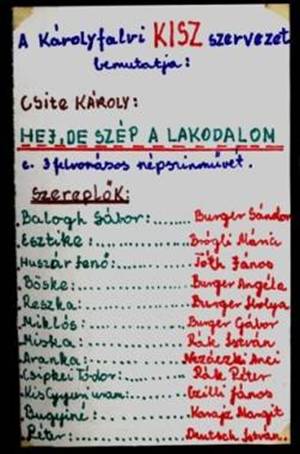 A Károlyfalvi KISZ szervezet
bemutatja:
Csite KÁROLY:
HEJ, DE SZÉP A LAKODALOM
c. 3 felvonásos népszinművét.
Szereplők:
Balogh Gábor: Burger Sándor
Esztike: Brógli Mária
Huszár Jenő: Tóth János
Böske: Burger Angéla
Reszka: Burger Ibolya
Miklós: Burger Gábor
Miska: Rák István
Aranka: Nezáczki Anci
Csipkei Tódor: Rák Péter
Kis Gyuri uram: Czilli János
Bugyiné: Karajz Margit
Péter: Deutsch István.